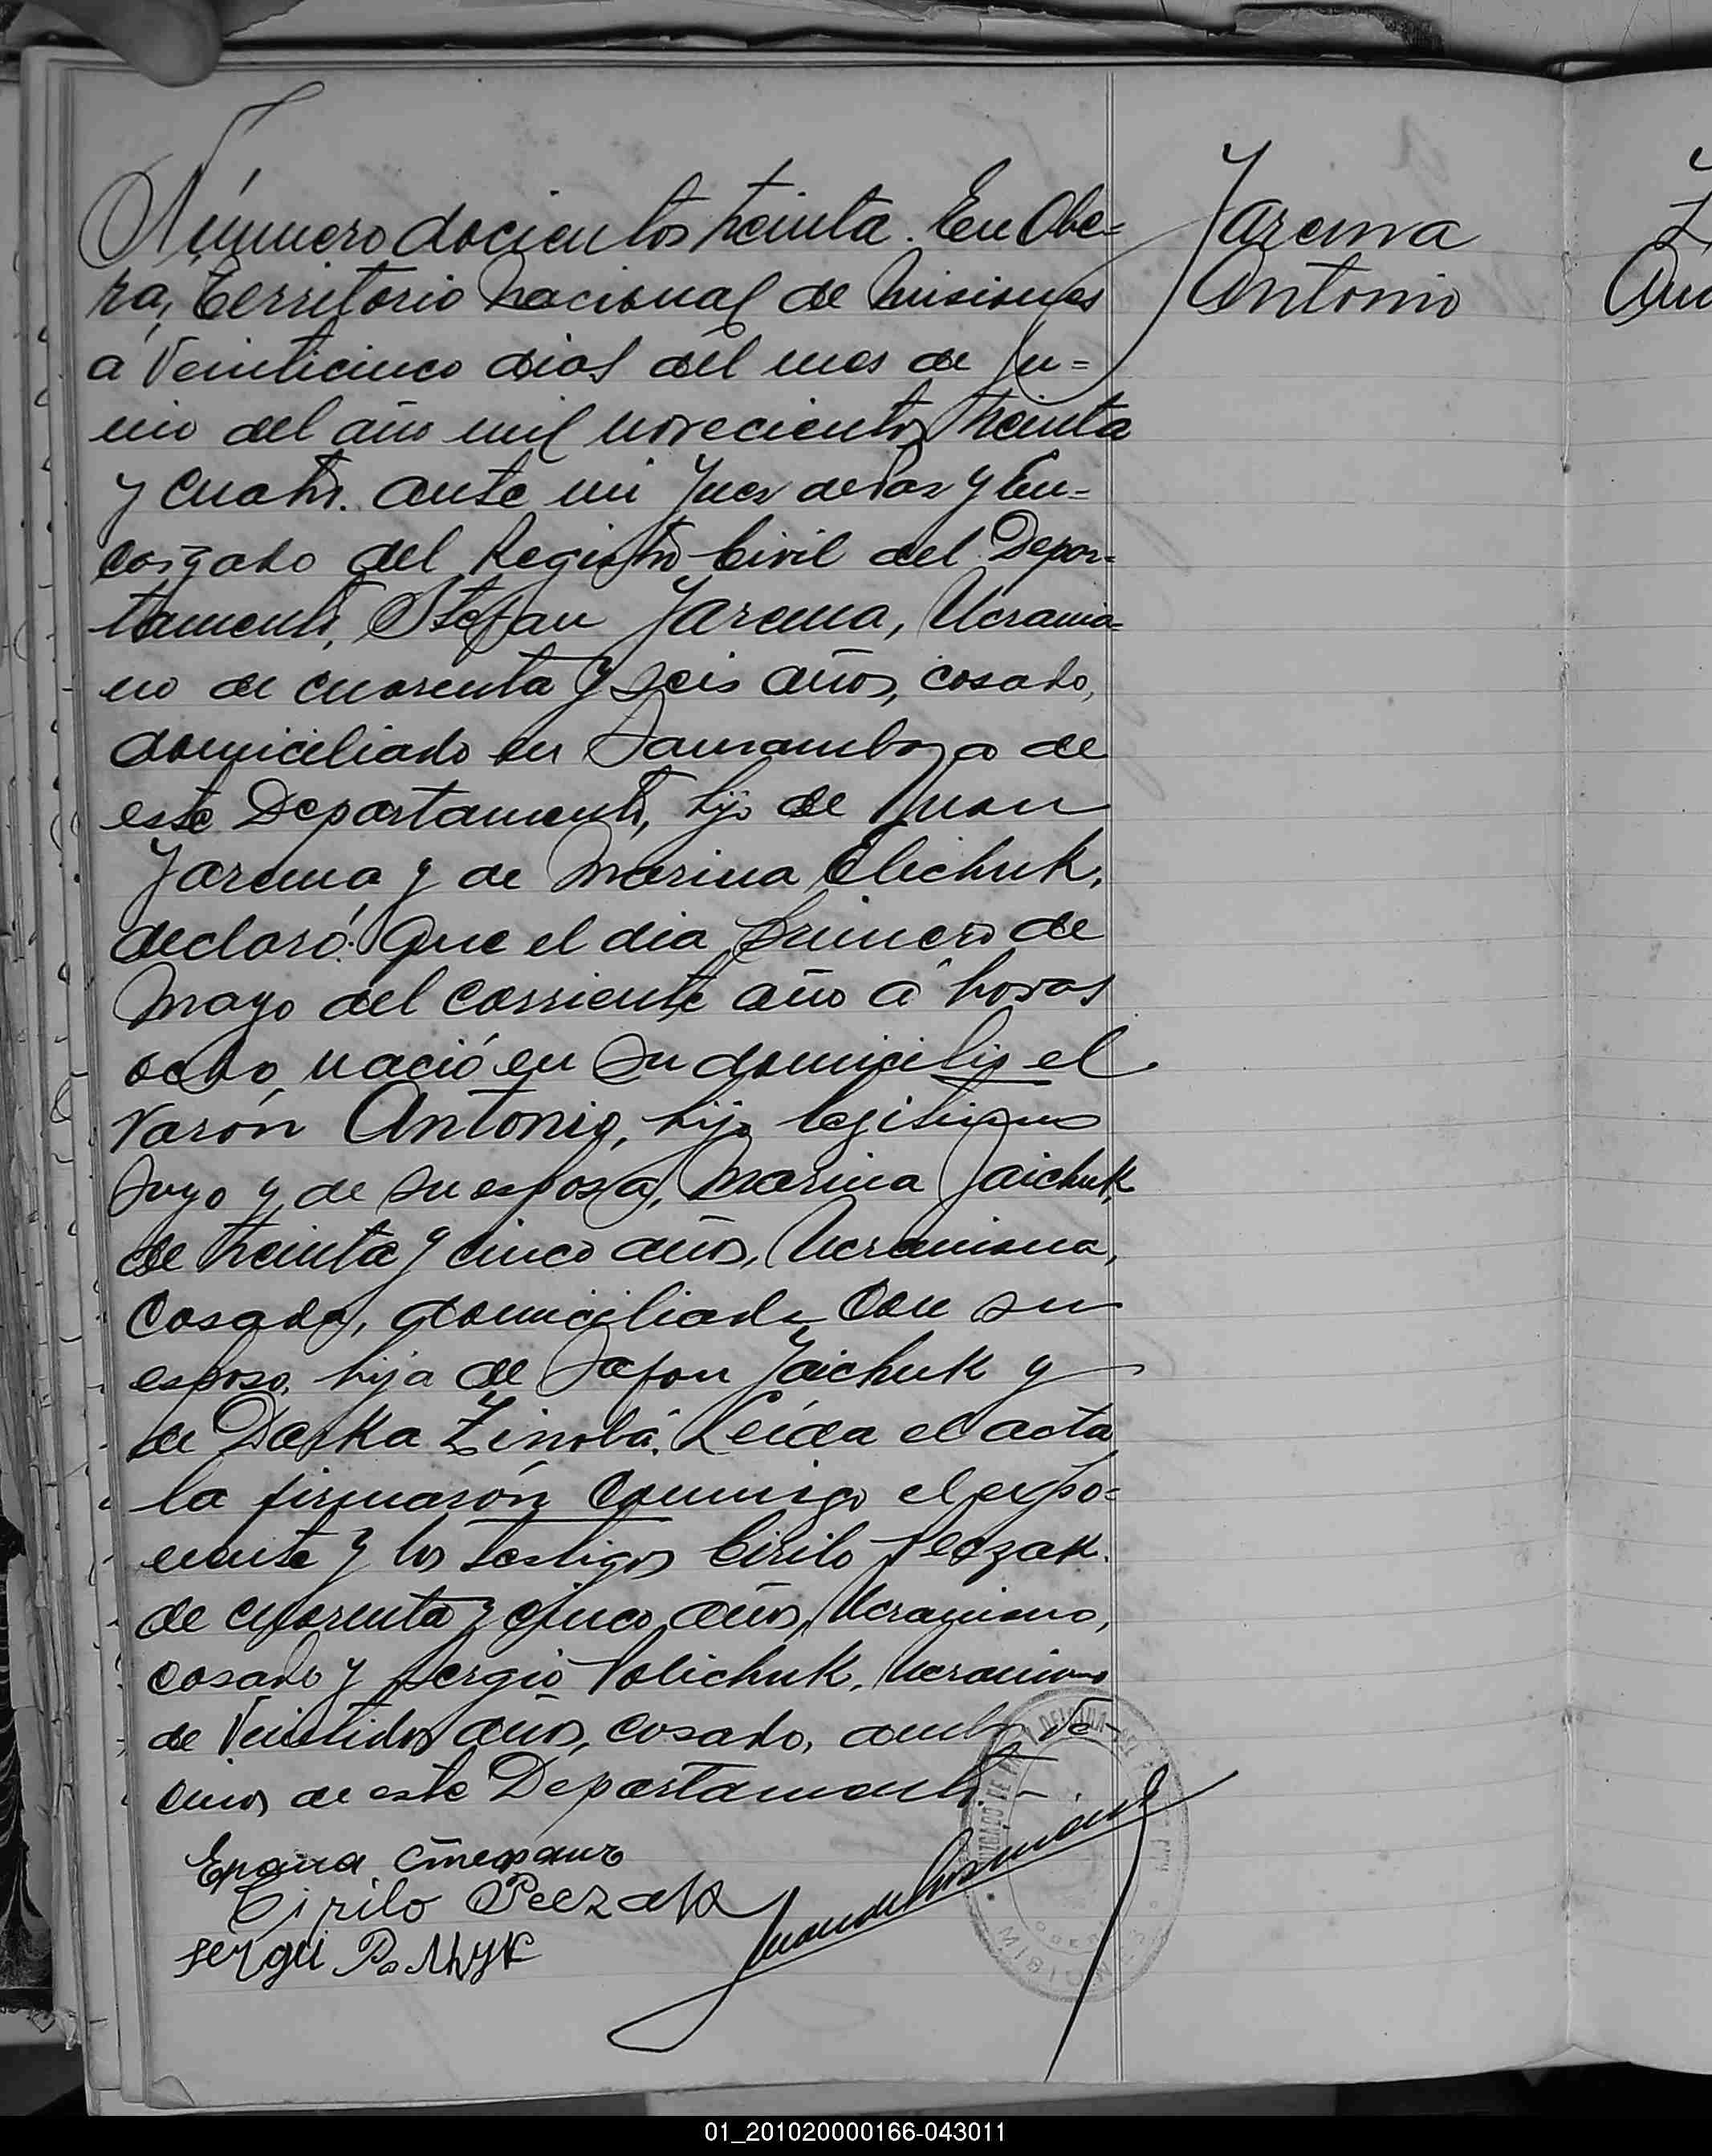 Número docientos treinta. En Obe=
rá, Territorio Nacional de Misiones
a Veinticinco dias del mes de Ju=
nio del año mil novecientos treinta
y cuatro. ante mi Juez de Paz y En=
cargado del Registro Civil del Depar=
tamento, Stefan Jarema, Ucrania=
no de cuarenta y seis años, casado,
domiciliado en Samambaya de
este Departamento, hijo de Juan
Jarema y de Marina Elichuk,
declaró: Que el dia primero de
Mayo del corriente año a horas
ocho, nació en su domicilio el
varón Antonio, hijo legitimo
suyo y de su esposa, Marina Jaichuk
de treinta y cinco años, Ucraniana,
Casada, domiciliada con su
esposo, hija de Safon Jaichuk y
de Darka Zinobá. Leída el acta
la firmarón conmigo el expo=
nente y los testigos Cirilo Peezak.
de cuarenta y cinco años, Ucraniano,
casado y Sergio Polichuk, Ucraniano
de Veintidos años, casado, ambos ve-
cinos de este Departamento. -
Cirilo Peezak
Sergii
Jarema
Antonio
MISIONES
01_201020000166-043011